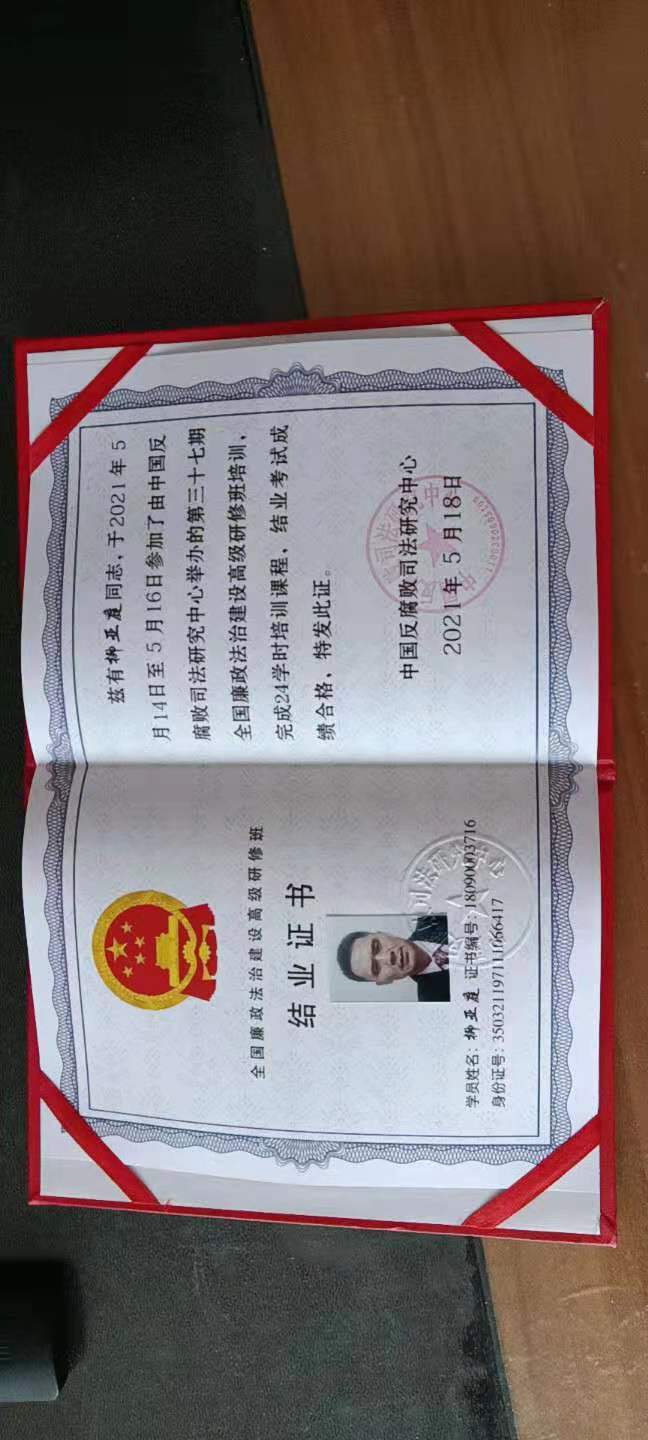 全国廉政法治建设高级研修班
结业证书
学员姓名：柳亚庭 证书编号：18090003716
身份证号：350321197111066417
兹有柳亚庭同志，于2021年5
月14日至5月16日参加了由中国反
腐败司法研究中心举办的第三十七期
全国廉政法治建设高级研修班培训，
完成24学时培训课程，结业考试成
绩合格，特发此证。
中国反腐败司法研究中心
2021年5月18日